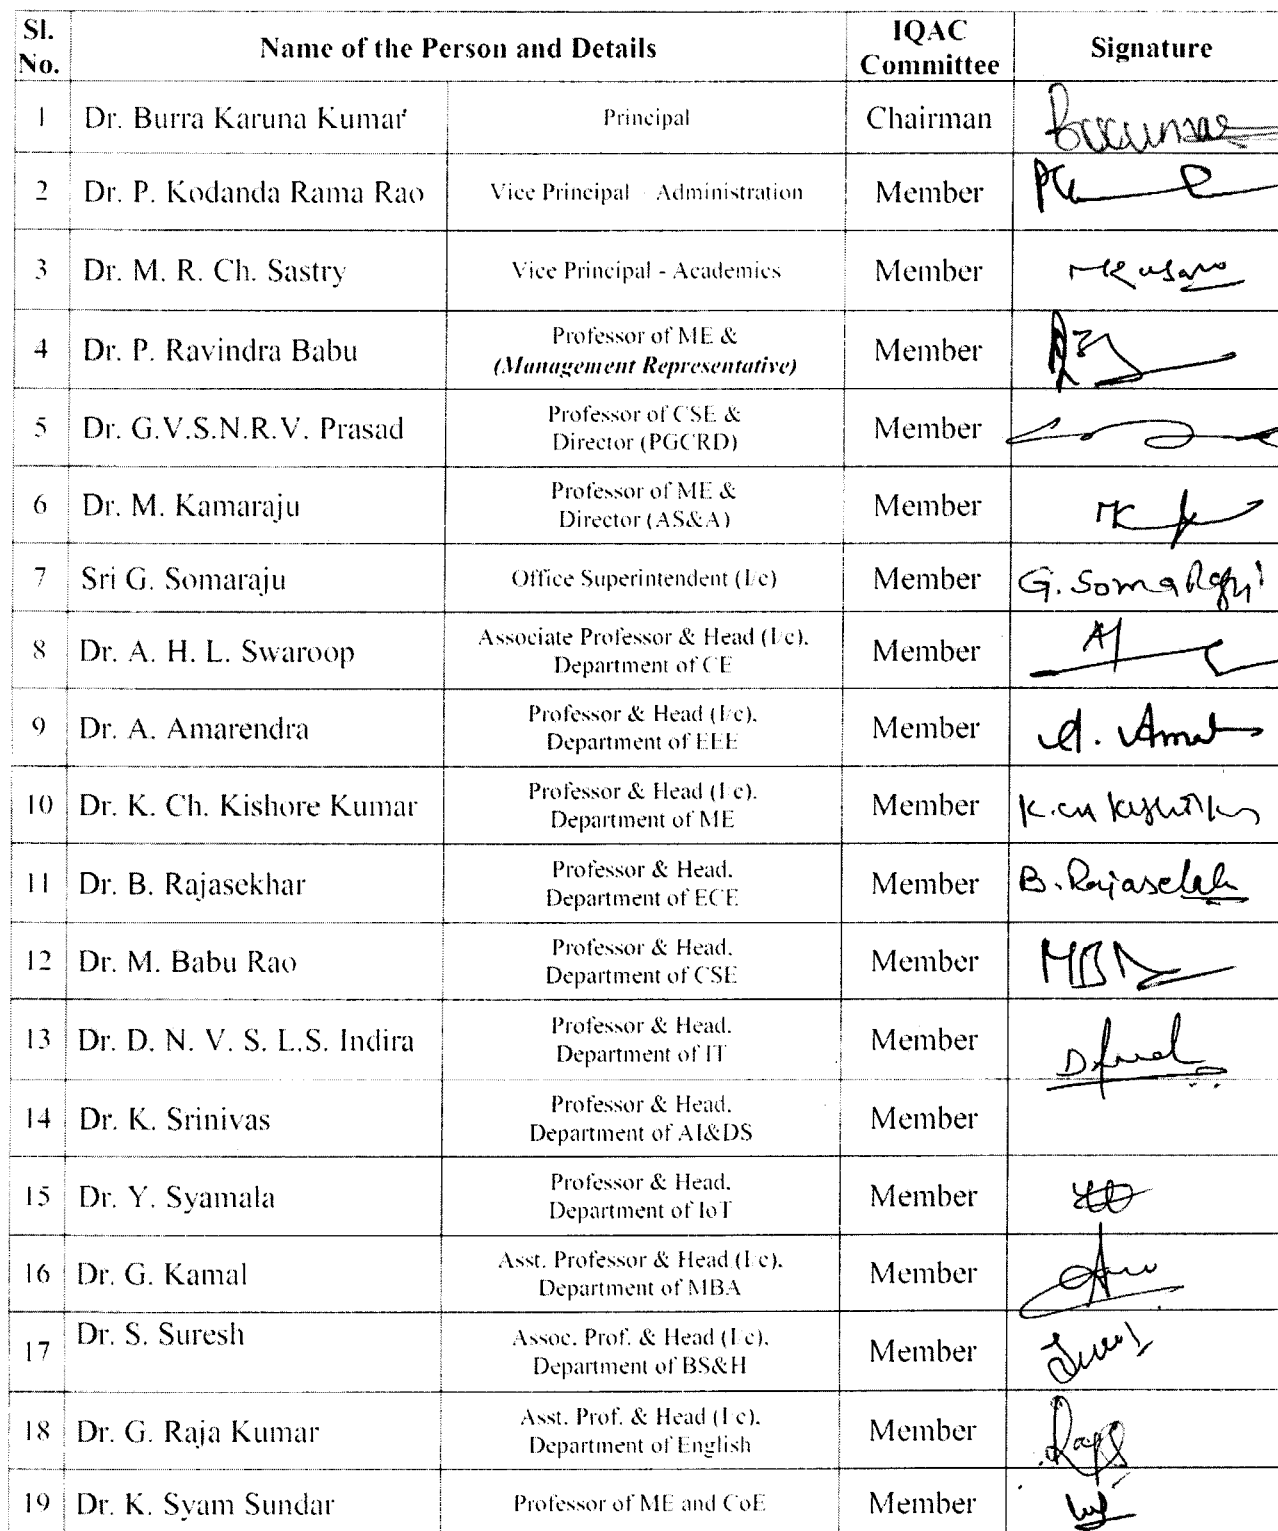 Sl. No. Name of the Person and Details IQAC Committee Signature
1 Dr. Burra Karuna Kumar Principal Chairman
2 Dr. P. Kodanda Rama Rao Vice Principal - Administration Member
3 Dr. M. R. Ch. Sastry Vice Principal - Academics Member
4 Dr. P. Ravindra Babu Professor of ME & (Management Representative) Member
5 Dr. G.V.S.N.R.V. Prasad Professor of CSE & Director (PGCRD) Member
6 Dr. M. Kamaraju Professor of ME & Director (AS&A) Member
7 Sri G. Somaraju Office Superintendent (I/c) Member G. SomaRaju
8 Dr. A. H. L. Swaroop Associate Professor & Head (I/c). Department of CE Member
9 Dr. A. Amarendra Professor & Head (I/c). Department of EEE Member
10 Dr. K. Ch. Kishore Kumar Professor & Head (I/c). Department of ME Member
11 Dr. B. Rajasekhar Professor & Head. Department of ECE Member B. Rajasekh
12 Dr. M. Babu Rao Professor & Head. Department of CSE Member
13 Dr. D. N. V. S. L.S. Indira Professor & Head. Department of IT Member
14 Dr. K. Srinivas Professor & Head. Department of AI&DS Member
15 Dr. Y. Syamala Professor & Head. Department of IoT Member
16 Dr. G. Kamal Asst. Professor & Head (I/c). Department of MBA Member
17 Dr. S. Suresh Assoc. Prof. & Head (I/c). Department of BS&H Member
18 Dr. G. Raja Kumar Asst. Prof. & Head (I/c). Department of English Member
19 Dr. K. Syam Sundar Professor of ME and CoE Member